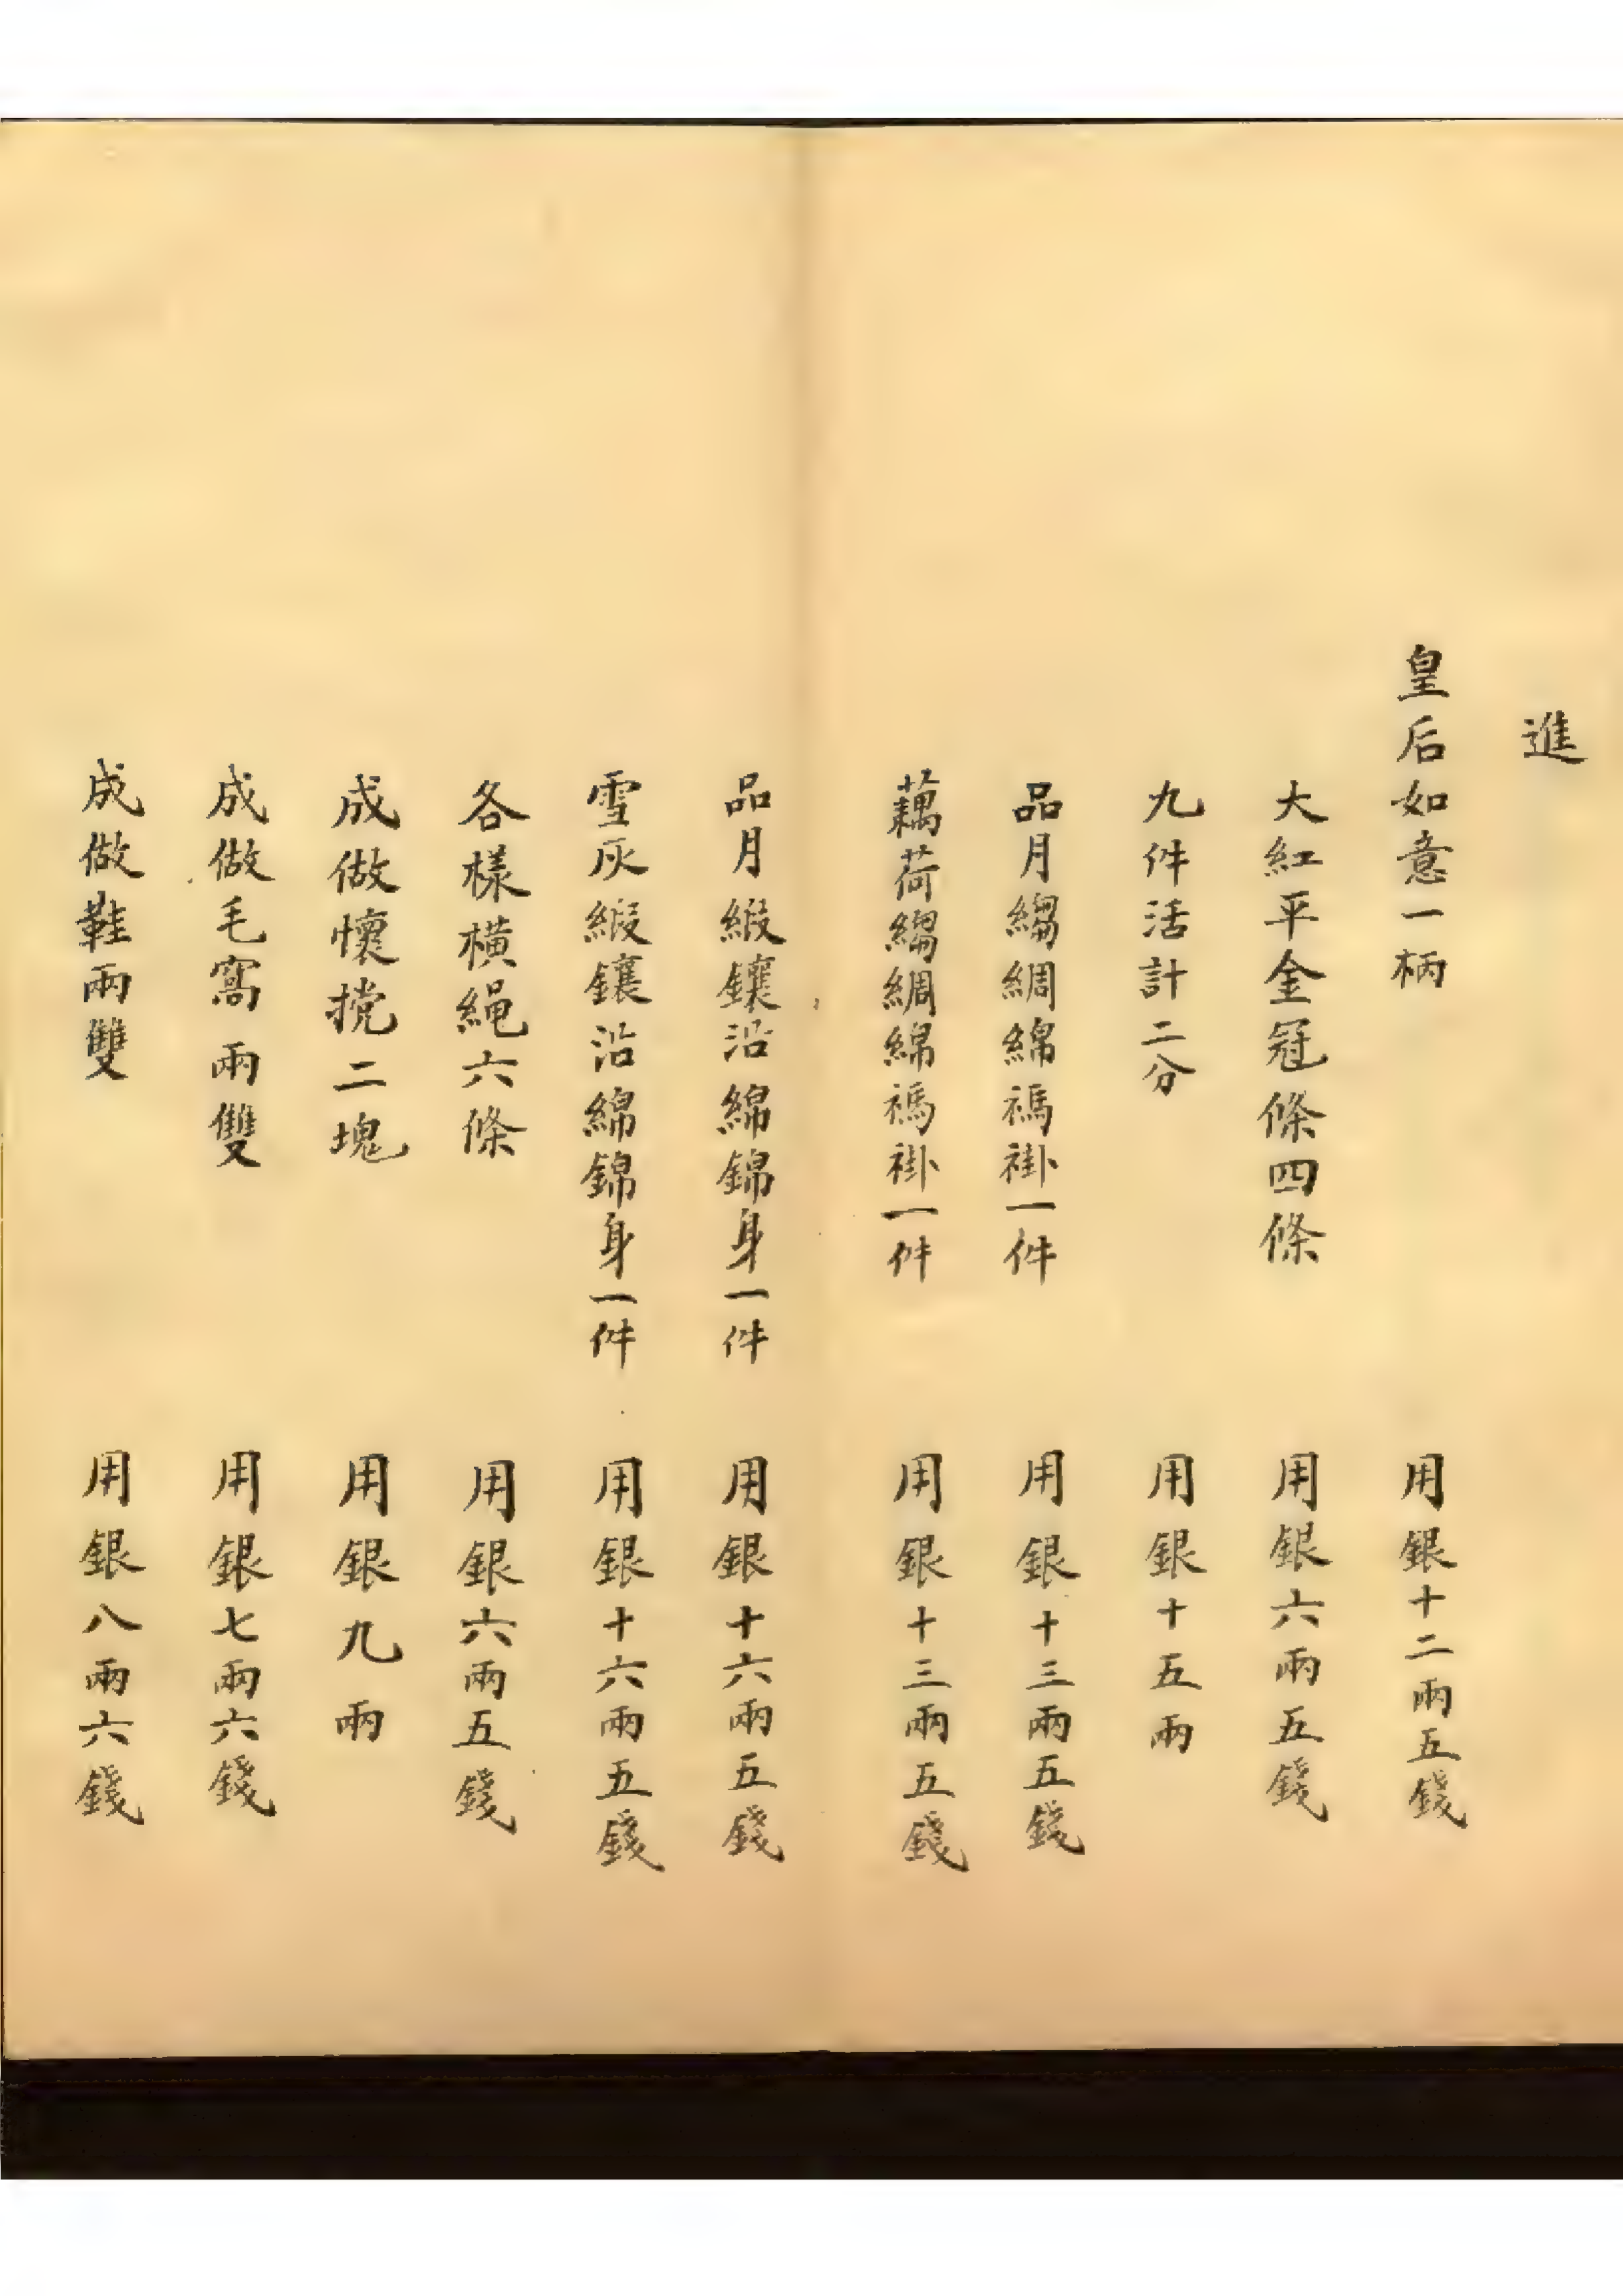 進
皇后如意一柄 用銀十二兩五錢
大紅平金冠條四條 用銀六兩五錢
九件活計二分 用銀十五兩
品月縐綢綿禡褂一件 用銀十三兩五錢
藕荷縐綢綿禡褂一件 用銀十三兩五錢
品月緞鑲沿綿錦身一件 用銀十六兩五錢
雪灰緞鑲沿綿錦身一件 用銀十六兩五錢
各樣橫繩六條 用銀六兩五錢
成做懷擋二塊 用銀九兩
成做毛窩兩雙 用銀七兩六錢
成做鞋兩雙 用銀八兩六錢